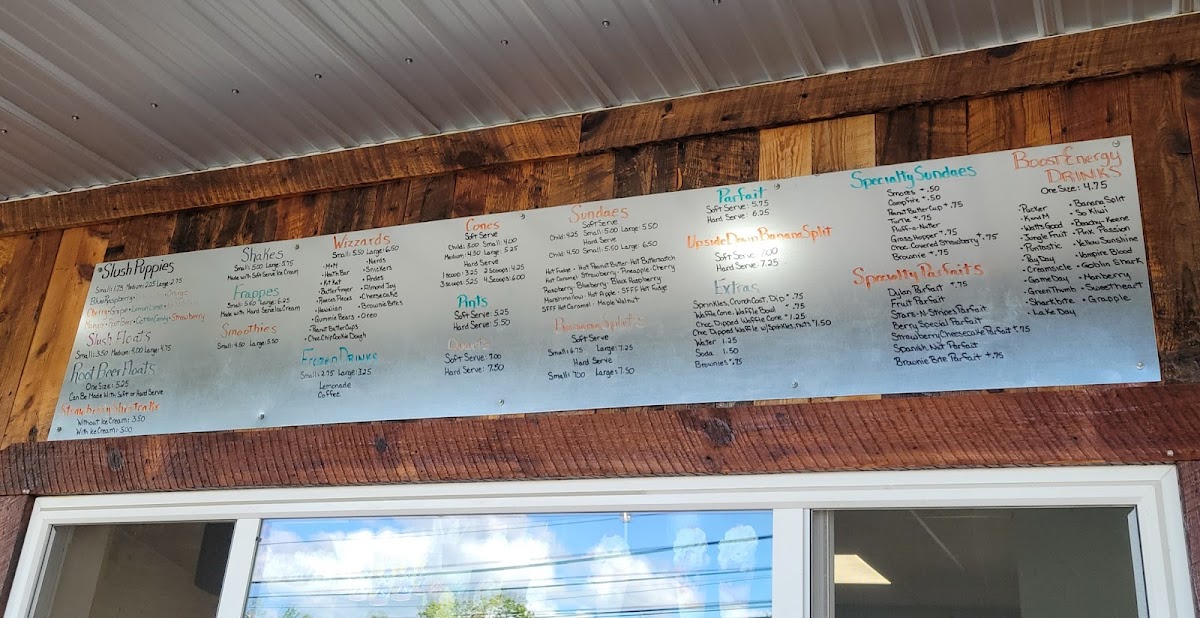 Slush Puppies
Small: 1.75 Medium: 2.25 Large: 2.75
Blue Raspberry Orange
Cherry Grape Lemon Lime
Mango Fruit Punch Cotton Candy Strawberry
Slush Floats
Small: 3.50 Medium: 4.00 Large: 4.75
Root Beer Floats
One Size: 5.25
Can Be Made With Soft or Hard Serve
Strawberry Shortcake
Without Ice Cream: 3.50
With Ice Cream: 5.00
Shakes
Small: 5.00 Large: 5.75
Made with Soft Serve Ice Cream
Frappes
Small: 5.60 Large: 6.25
Made with Hard Serve Ice Cream
Smoothies
Small: 4.50 Large: 5.50
Wizzards
Small: 5.50 Large: 6.50
• M+M
• Heath Bar
• Kit Kat
• Butterfinger
• Reeces Pieces
• Hawaiian
• Gummie Bears
• Peanut Butter Cups
• Choc Chip Cookie Dough
• Nerds
• Snickers
• Andes
• Almond Joy
• Cheesecake
• Brownie Bites
• Oreo
Frozen Drinks
Small: 2.75 Large: 3.25
Lemonade
Coffee
Cones
Soft Serve
Child: 3.00 Small: 4.00
Medium: 4.50 Large: 5.25
Hard Serve
1 scoop: 3.25 2 scoops: 4.25
3 scoops: 5.25 4 scoops: 6.00
Pints
Soft Serve: 5.25
Hard Serve: 5.50
Quarts
Soft Serve: 7.00
Hard Serve: 7.50
Sundaes
Soft Serve
Child: 4.25 Small: 5.00 Large: 5.50
Hard Serve
Child: 4.50 Small: 5.50 Large: 6.50
Hot Fudge · Hot Peanut Butter · Hot Butterscotch
Hot Caramel · Strawberry · Pineapple · Cherry
Raspberry · Blueberry · Black Raspberry
Marshmallow · Hot Apple · SFFF Hot Fudge
SFFF Hot Caramel · Maple Walnut
Banana Splits
Soft Serve
Small: 6.75 Large: 7.25
Hard Serve
Small: 7.00 Large: 7.50
Parfait
Soft Serve: 5.75
Hard Serve: 6.25
Upside Down Banana Split
Soft Serve: 7.00
Hard Serve: 7.25
Extras
Sprinkles, Crunch Coat, Dip + .75
Waffle Cone, Waffle Bowl
Choc Dipped Waffle Cone + 1.25
Choc Dipped Waffle w/Sprinkles, nuts + 1.50
Water 1.25
Soda 1.50
Brownies + .75
Specialty Sundaes
Smores + .50
Campfire + .50
Peanut Butter Cup + .75
Turtle + .75
Fluff-a-Nutter
Grass Hopper + .75
Choc Covered Strawberry + .75
Brownie + .75
Specialty Parfaits
Dylan Parfait + .75
Fruit Parfait
Stars-N-Stripes Parfait
Berry Special Parfait
Strawberry Cheesecake Parfait + .75
Spanish Nut Parfait
Brownie Bite Parfait + .75
Boost Energy
Drinks
One Size: 4.75
• Pucker
• Kiwi M
• Watts Good
• Jungle Fruit
• Puntastic
• Pay Day
• Creamsicle
• Game Day
• Green Thumb
• Sharkbite
• Lake Day
• Banana Split
• So Kiwi
• Peachy-Keene
• Pink Passion
• Yellow Sunshine
• Vampire Blood
• Goblin Shark
• Manberry
• Sweetheart
• Grapple